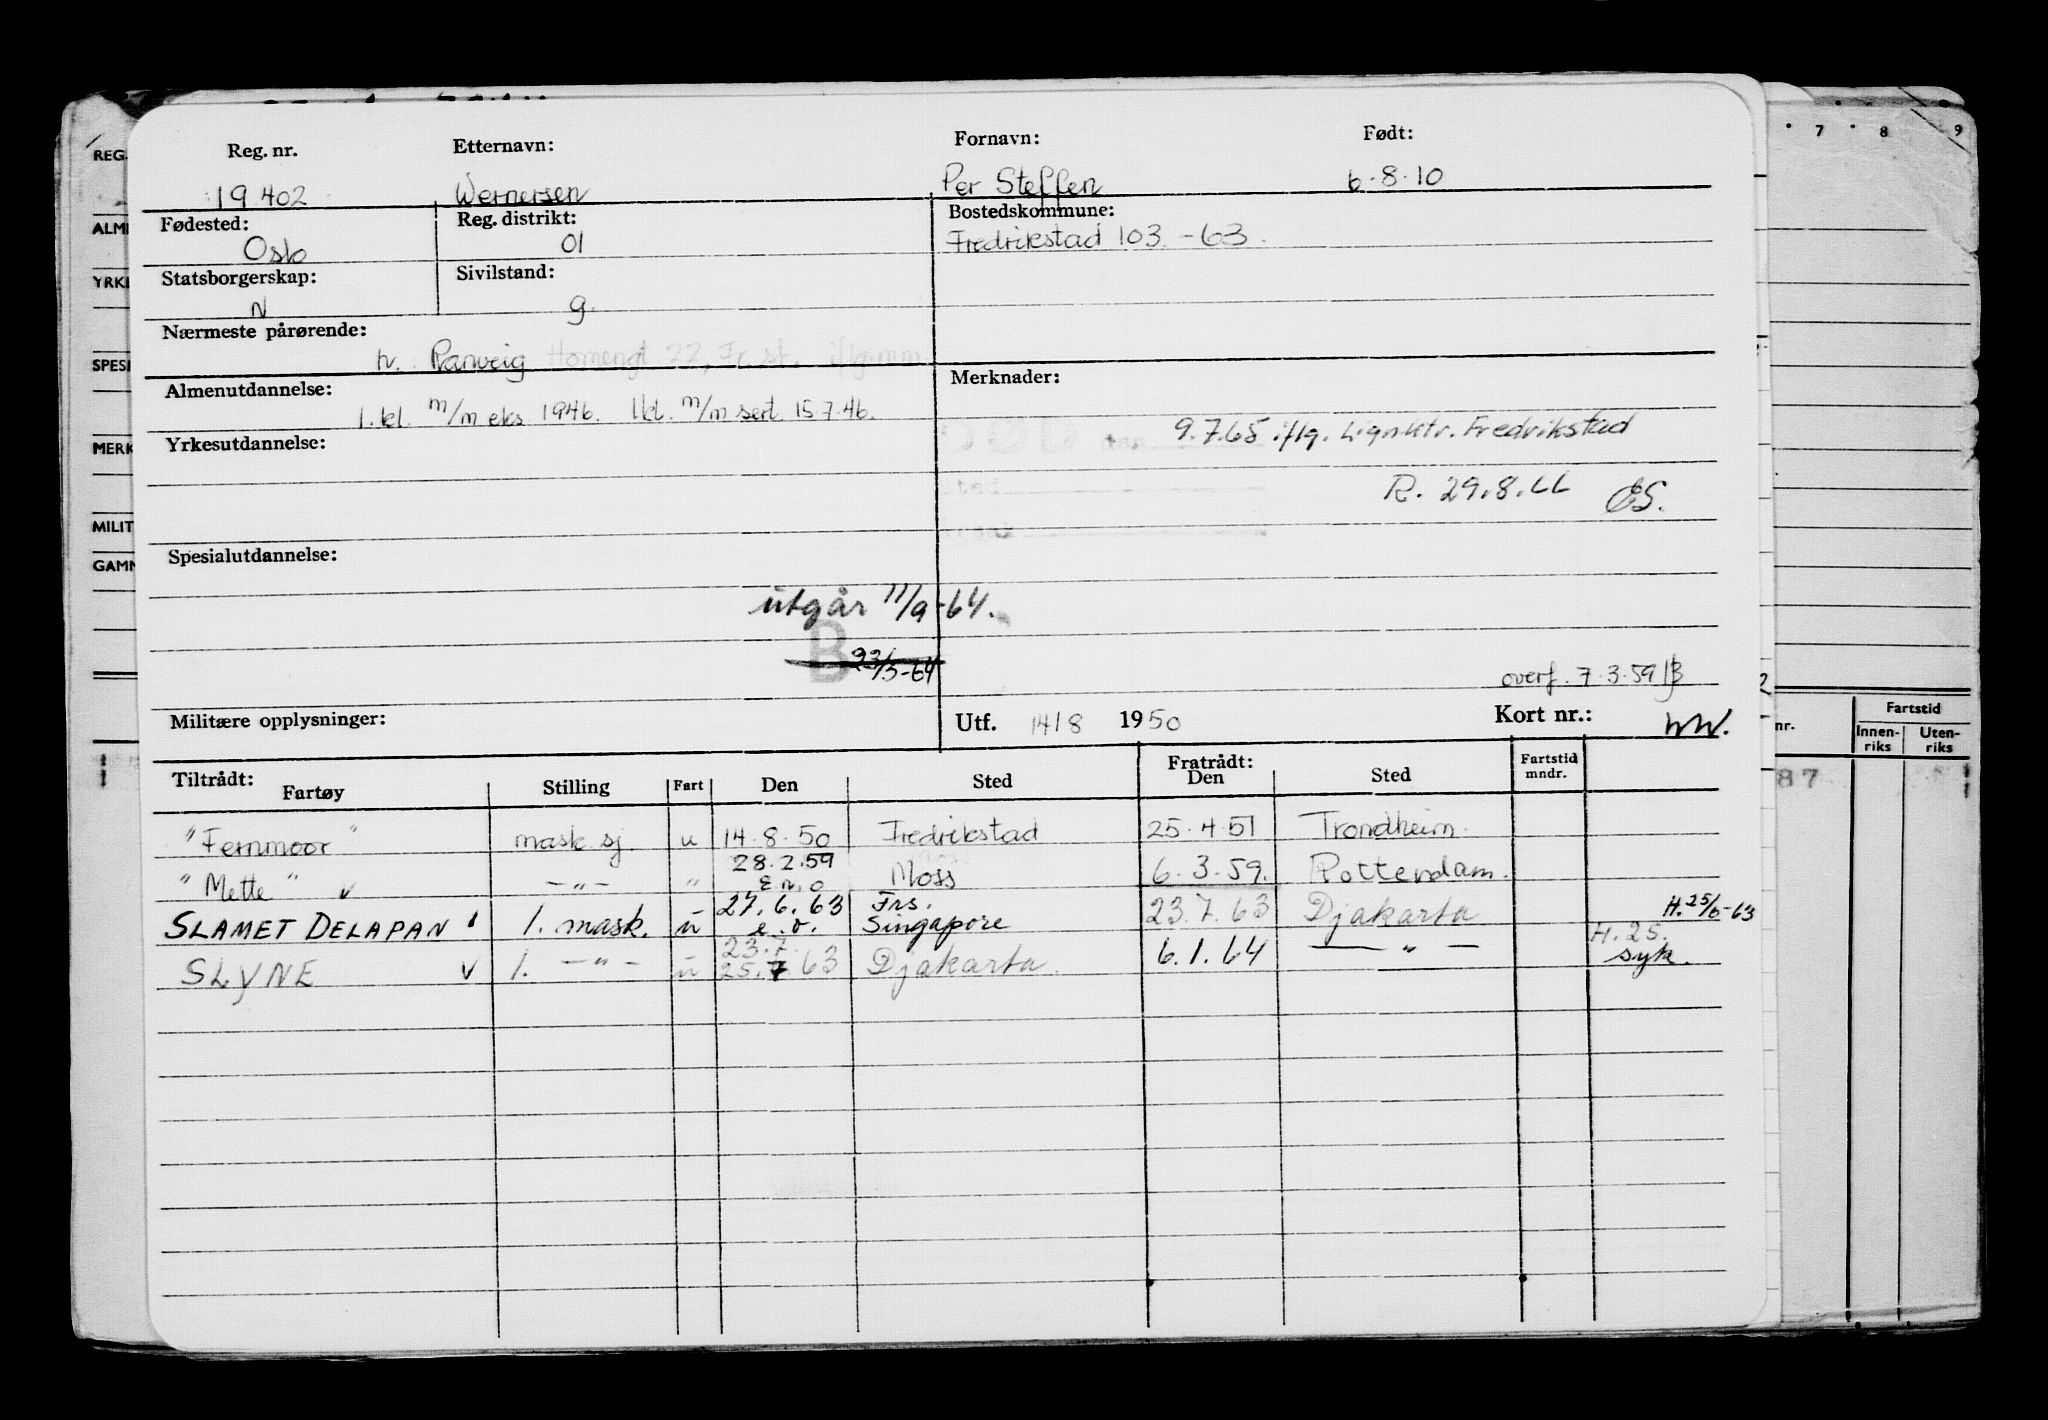 Reg. nr. Etternavn: Fornavn: Født:
19.402 Wernersen Per Steffen 6.8.10
Fødested: Reg. distrikt: Bostedskommune:
Oslo 01 Fredrikstad 103 -63.
Statsborgerskap: Sivilstand:
N g.
Nærmeste pårørende:
h. Ranveig Homengt 22, Fr.st. iflg mm
Almenutdannelse: Merknader:
1. kl. m/m eks 1946. 1 kl. m/m sert. 15.7.46.
DØD den
9.7.65 iflg. Lignktr. Fredrikstad
Yrkesutdannelse:
Sted
R. 29.8.66 ES.
Spesialutdannelse:
utgår 11/9-64.
B
23/3-64
overf. 7.3.59
Militære opplysninger: Utf. 14/8 1950 Kort nr.: WW.
Tiltrådt: Fratrådt:
Fartøy Stilling Fart Den Sted Den Sted Fartstid mndr.
"Fernmoor" mask sj. u 14.8.50 Fredrikstad 25.4.51 Trondheim.
28.2.59
"Mette" v -"- " e.o Moss 6.3.59. Rotterdam.
27.6.63 Frs.
SLAMET DELAPAN 1. mask. u e.o. Singapore 23.7.63 Djakarta H.25/6-63
23.7. H.25.
SLYNE v 1. -"- u 25.7 63 Djakarta. 6.1.64 -"- syk.
REG.
ALM
YRK
SPESI
MERK
MILIT
GAMM
7 8 9
nr. Fartstid
Innen-riks Uten-riks
87